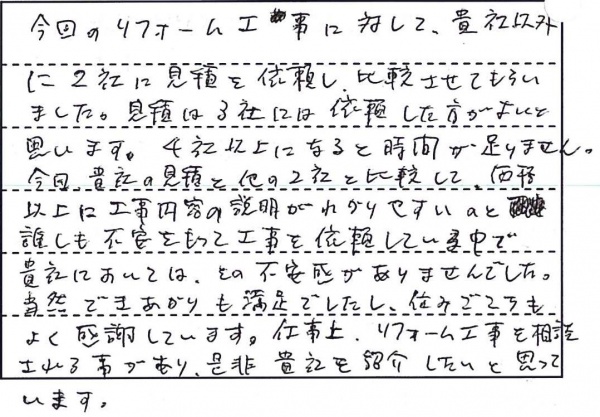 今回のリフォーム工事に対して、貴社以外
に2社に見積を依頼し、比較させてもらい
ました。見積は3社には依頼した方がよいと
思います。4社以上になると時間が足りません。
今回、貴社の見積と他の2社と比較して、価格
以上に工事内容の説明がわかりやすいのと
誰しも不安をもって工事を依頼している中で
貴社においては、その不安感がありませんでした。
当然できあがりも満足でしたし、住みごこちも
よく感謝しています。仕事上、リフォーム工事を相談
される事があり、是非貴社を紹介したいと思って
います。